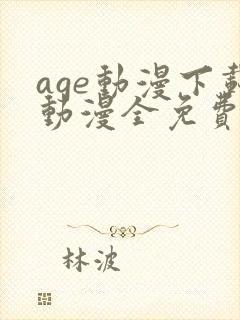 age動漫下載
動漫全免費
林波